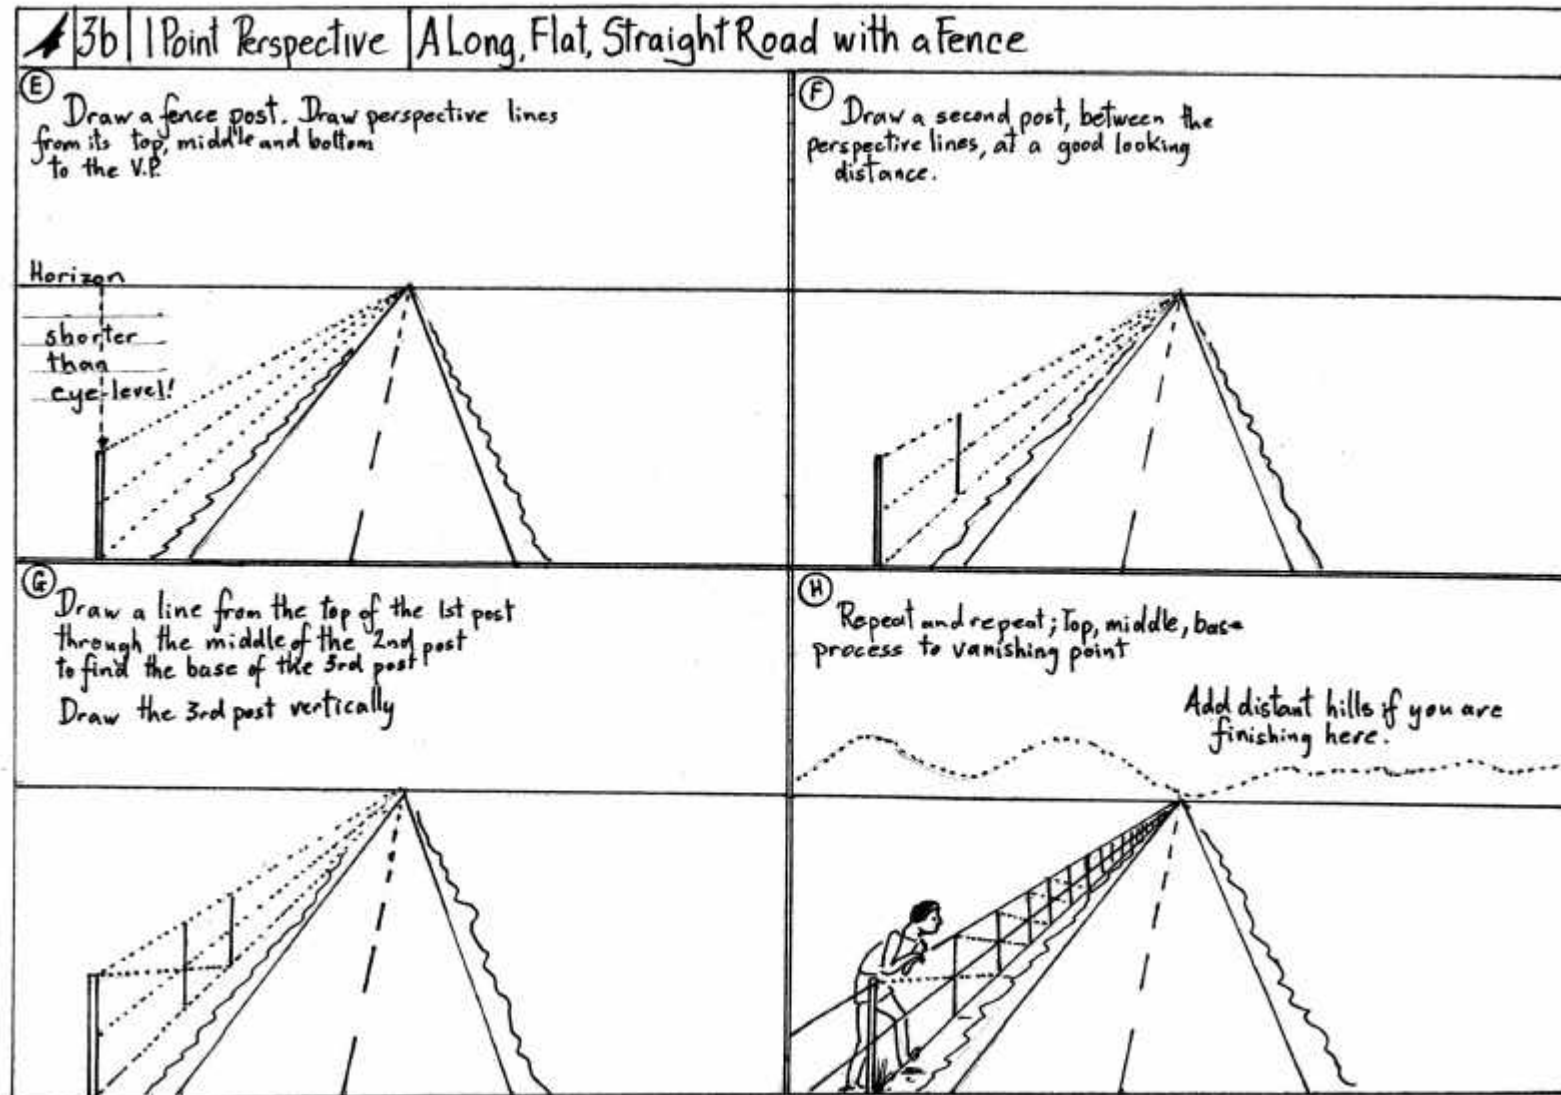 3b 1 Point Perspective A Long, Flat, Straight Road with a Fence
E
Draw a fence post. Draw perspective lines
from its top, middle and bottom
to the V.P.
Horizon
shorter
than
eye-level!
F
Draw a second post, between the
perspective lines, at a good looking
distance.
G
Draw a line from the top of the 1st post
through the middle of the 2nd post
to find the base of the 3rd post
Draw the 3rd post vertically
H
Repeat and repeat; Top, middle, base
process to vanishing point
Add distant hills if you are
finishing here.